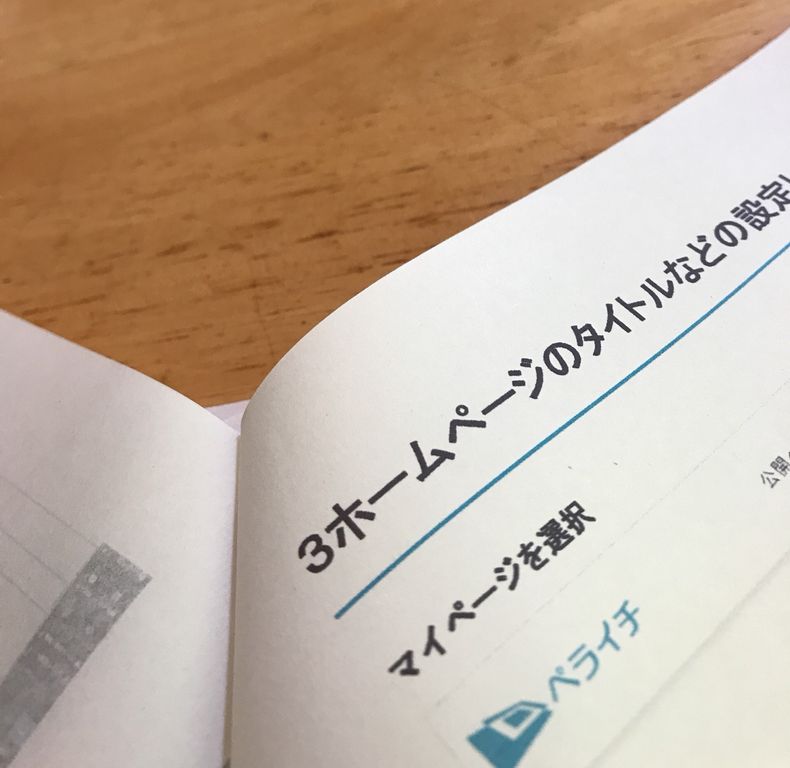 3ホームページのタイトルなどの設定
マイページを選択
公開
ペライチ